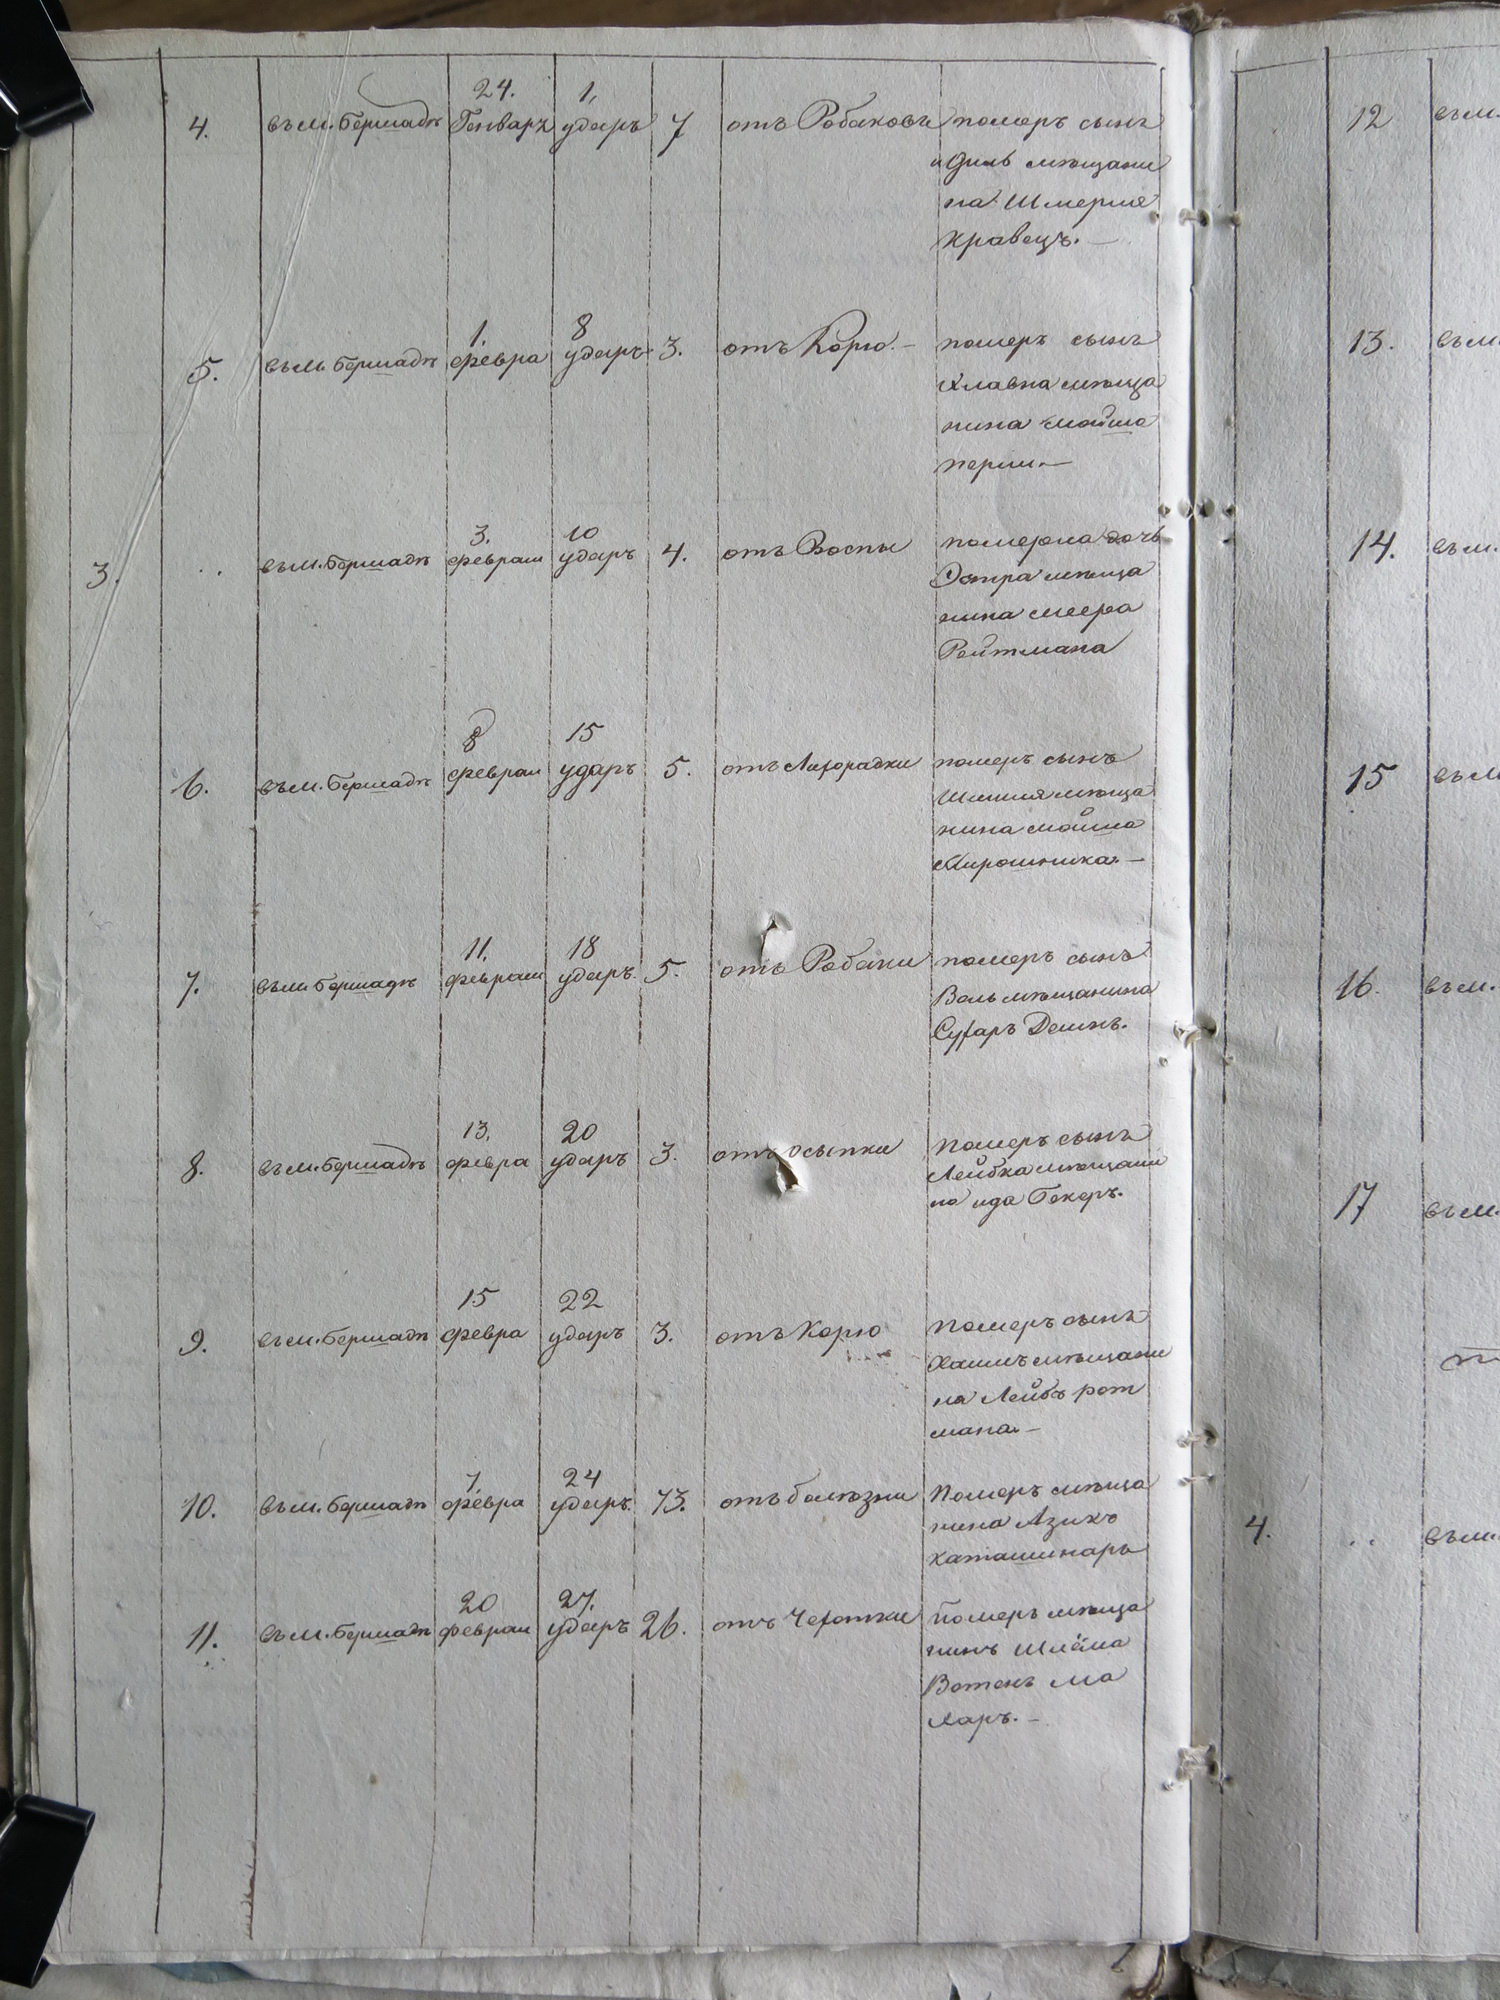 24. 1,
4. въ м. Бершадѣ Генваръ удеръ 7 отъ Робаковъ померъ сынъ
Идиль мѣщани
на Шмерия
Кравецъ. —
1. 8
5. въ м. Бершадѣ февра удеръ 3. отъ Корю. — померъ сынъ
Хлавна мѣща
нина Мойша
перии. —
3. 10
3. .. въ м. Бершадѣ феврал удеръ 4. отъ Воспы померла дочь
Эстра мѣща
нина Меера
Рейтмана
8 15
6. въ м. Бершадѣ феврал удеръ 5. отъ Лихорадки померъ сынъ
мѣща
нина Мойша
Мирошника. —
11. 18
7. въ м. Бершадѣ феврал удеръ 5. отъ Робаки померъ сынъ
Воль мѣщанина
Сухаръ
13. 20
8. въ м. Бершадѣ февра удеръ 3. отъ осыпки померъ сынъ
Лейбка мѣщани
на Ида Бекеръ.
15 22
9. въ м. Бершадѣ февра удеръ 3. отъ Корю померъ сынъ
Хаимъ мѣщани
на Лейбъ рот
мана. —
7. 24
10. въ м. Бершадѣ февра удеръ 73. отъ болѣзни Померъ мѣща
нина Азикъ
Каташинаръ
20 27.
11. въ м. Бершадѣ феврал удеръ 26. отъ Чехотки Померъ мѣща
нинъ Шлёма
Вотенъ Ма
харъ. —
12 въ м.
13. въ м.
14. въ м.
15 въ м.
16. въ м.
17 въ м.
4. .. въ м.